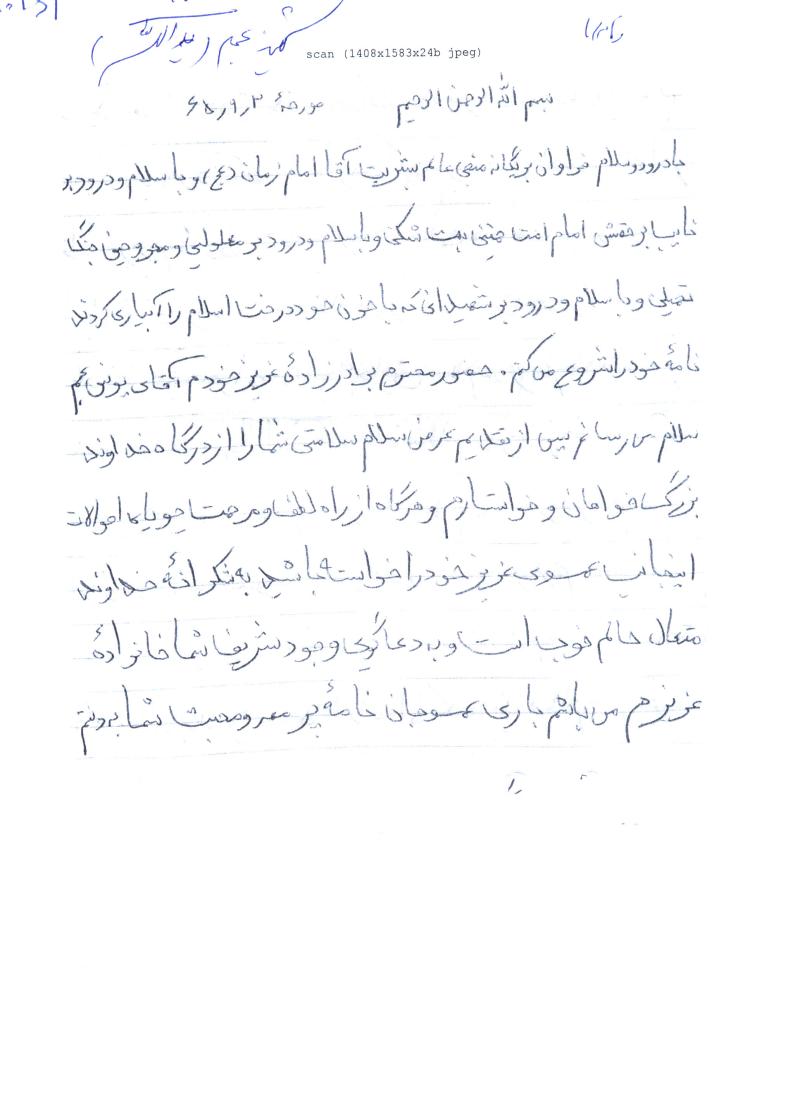 شهید عجم (یدالله)
scan (1408x1583x24b jpeg)
بسم الله الرحمن الرحیم مورخهٔ ۶۵/۹/۲
با درود و سلام فراوان بر یگانه منجی عالم بشریت آقا امام زمان (عج) و با سلام و درود بر
نایب برحقش امام امت خمینی بت شکن و با سلام و درود بر معلولین و مجروحین جنگ
تحمیلی و با سلام و درود بر شهیدانی که با خون خود درخت اسلام را آبیاری کردند
نامهٔ خود را شروع می کنم. حضور محترم برادرزادهٔ عزیز خودم آقای یونس عجم
سلام می رسانم پس از تقدیم عرض سلام سلامتی شما را از درگاه خداوند
بزرگ خواهان و خواستارم و هرگاه از راه لطف و مرحمت جویای احوالات
اینجانب عموی عزیز خود را خواسته باشید به شکرانهٔ خداوند
متعال حالم خوب است و به دعاگوی وجود شریف شما خانوادهٔ
عزیزم می باشم باری عموجان نامهٔ پر مهر و محبت شما بدستم